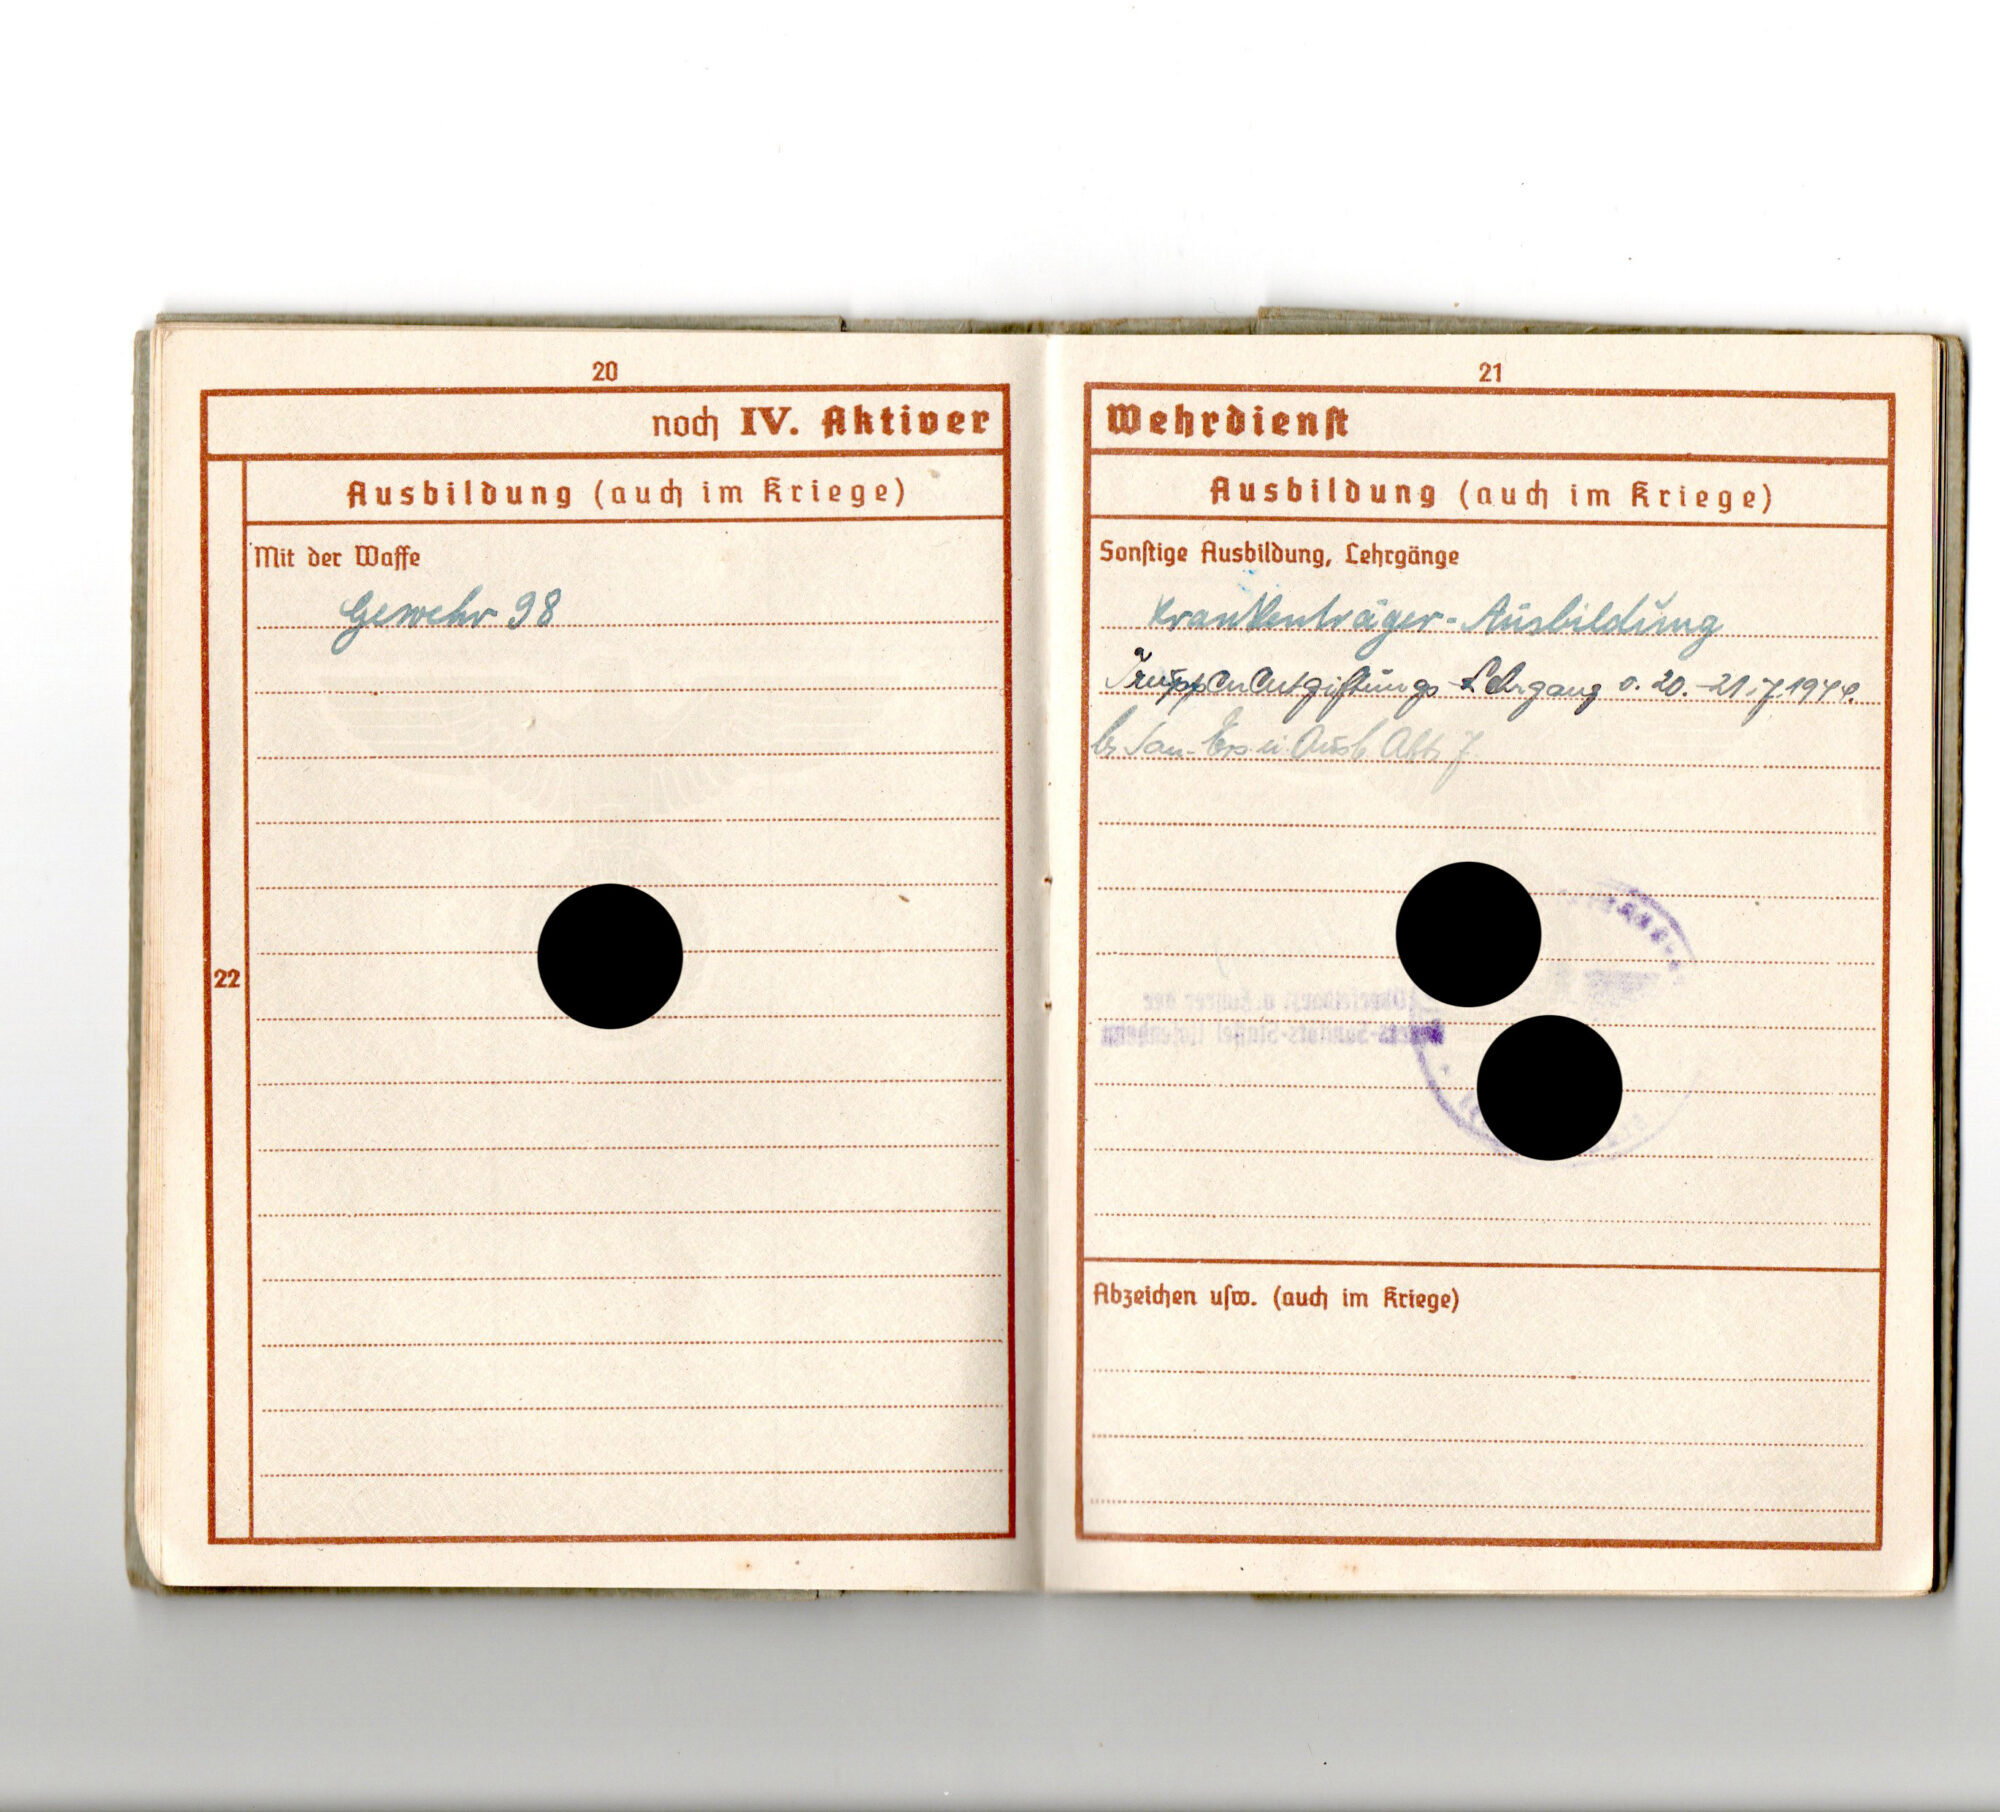 20
noch IV. Aktiver
Ausbildung (auch im Kriege)
Mit der Waffe
Gewehr 98
22
21
Wehrdienst
Ausbildung (auch im Kriege)
Sonstige Ausbildung, Lehrgänge
Krankenträger-Ausbildung
Truppenentgiftungs-Lehrgang v. 20.-21.7.1944.
b. San.-Ers. u. Ausb. Abt. 7
Abzeichen usw. (auch im Kriege)